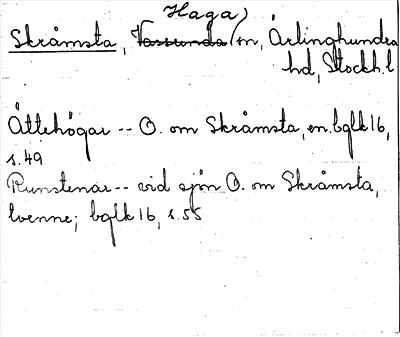 Haga)
Skråmsta, Vassunda (sn, Ärlinghundra
hd, Stockh.l
Ättehögar -- O. om Skråmsta, en. bglk 16,
s. 49
Runstenar -- vid sjön O. om Skråmsta,
tvenne; bglk 16, s. 55